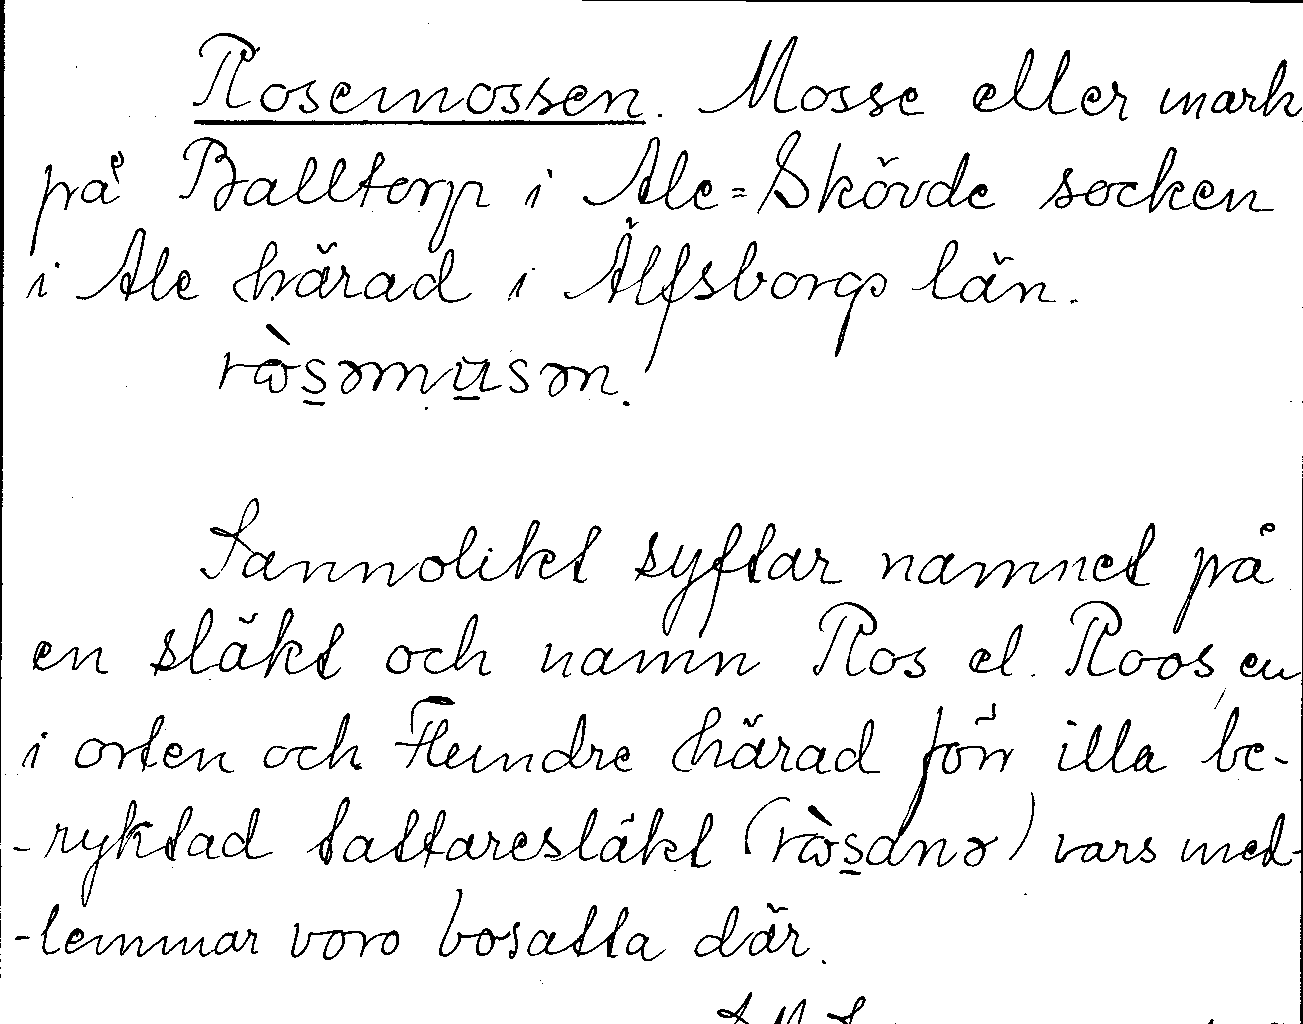 Rosemossen. Mosse eller mark
på Balltorp i Ale=Skövde socken
i Ale härad i Älfsborgs län.
ròsəmusən.
Sannolikt syftar namnet på
en släkt och namn Ros el. Roos, en
i orten och Flundre härad förr illa be-
-ryktad tattaresläkt (ròsanə) vars med-
-lemmar voro bosatta där.